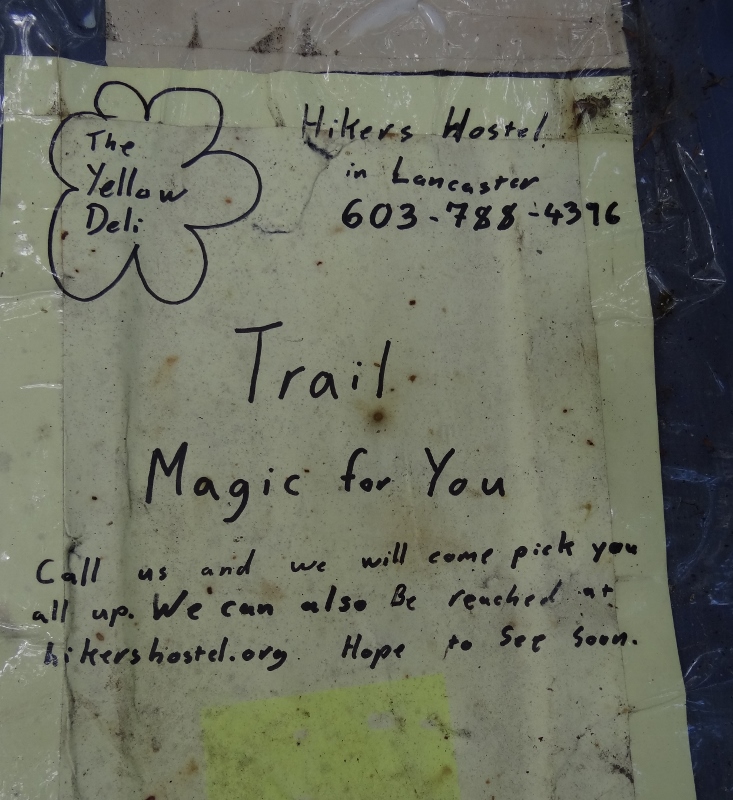 The
Yellow
Deli
Hikers Hostel
in Lancaster
603-788-4396
Trail
Magic for You
Call us and we will come pick you
all up. We can also Be reached at
hikershostel.org Hope to See Soon.